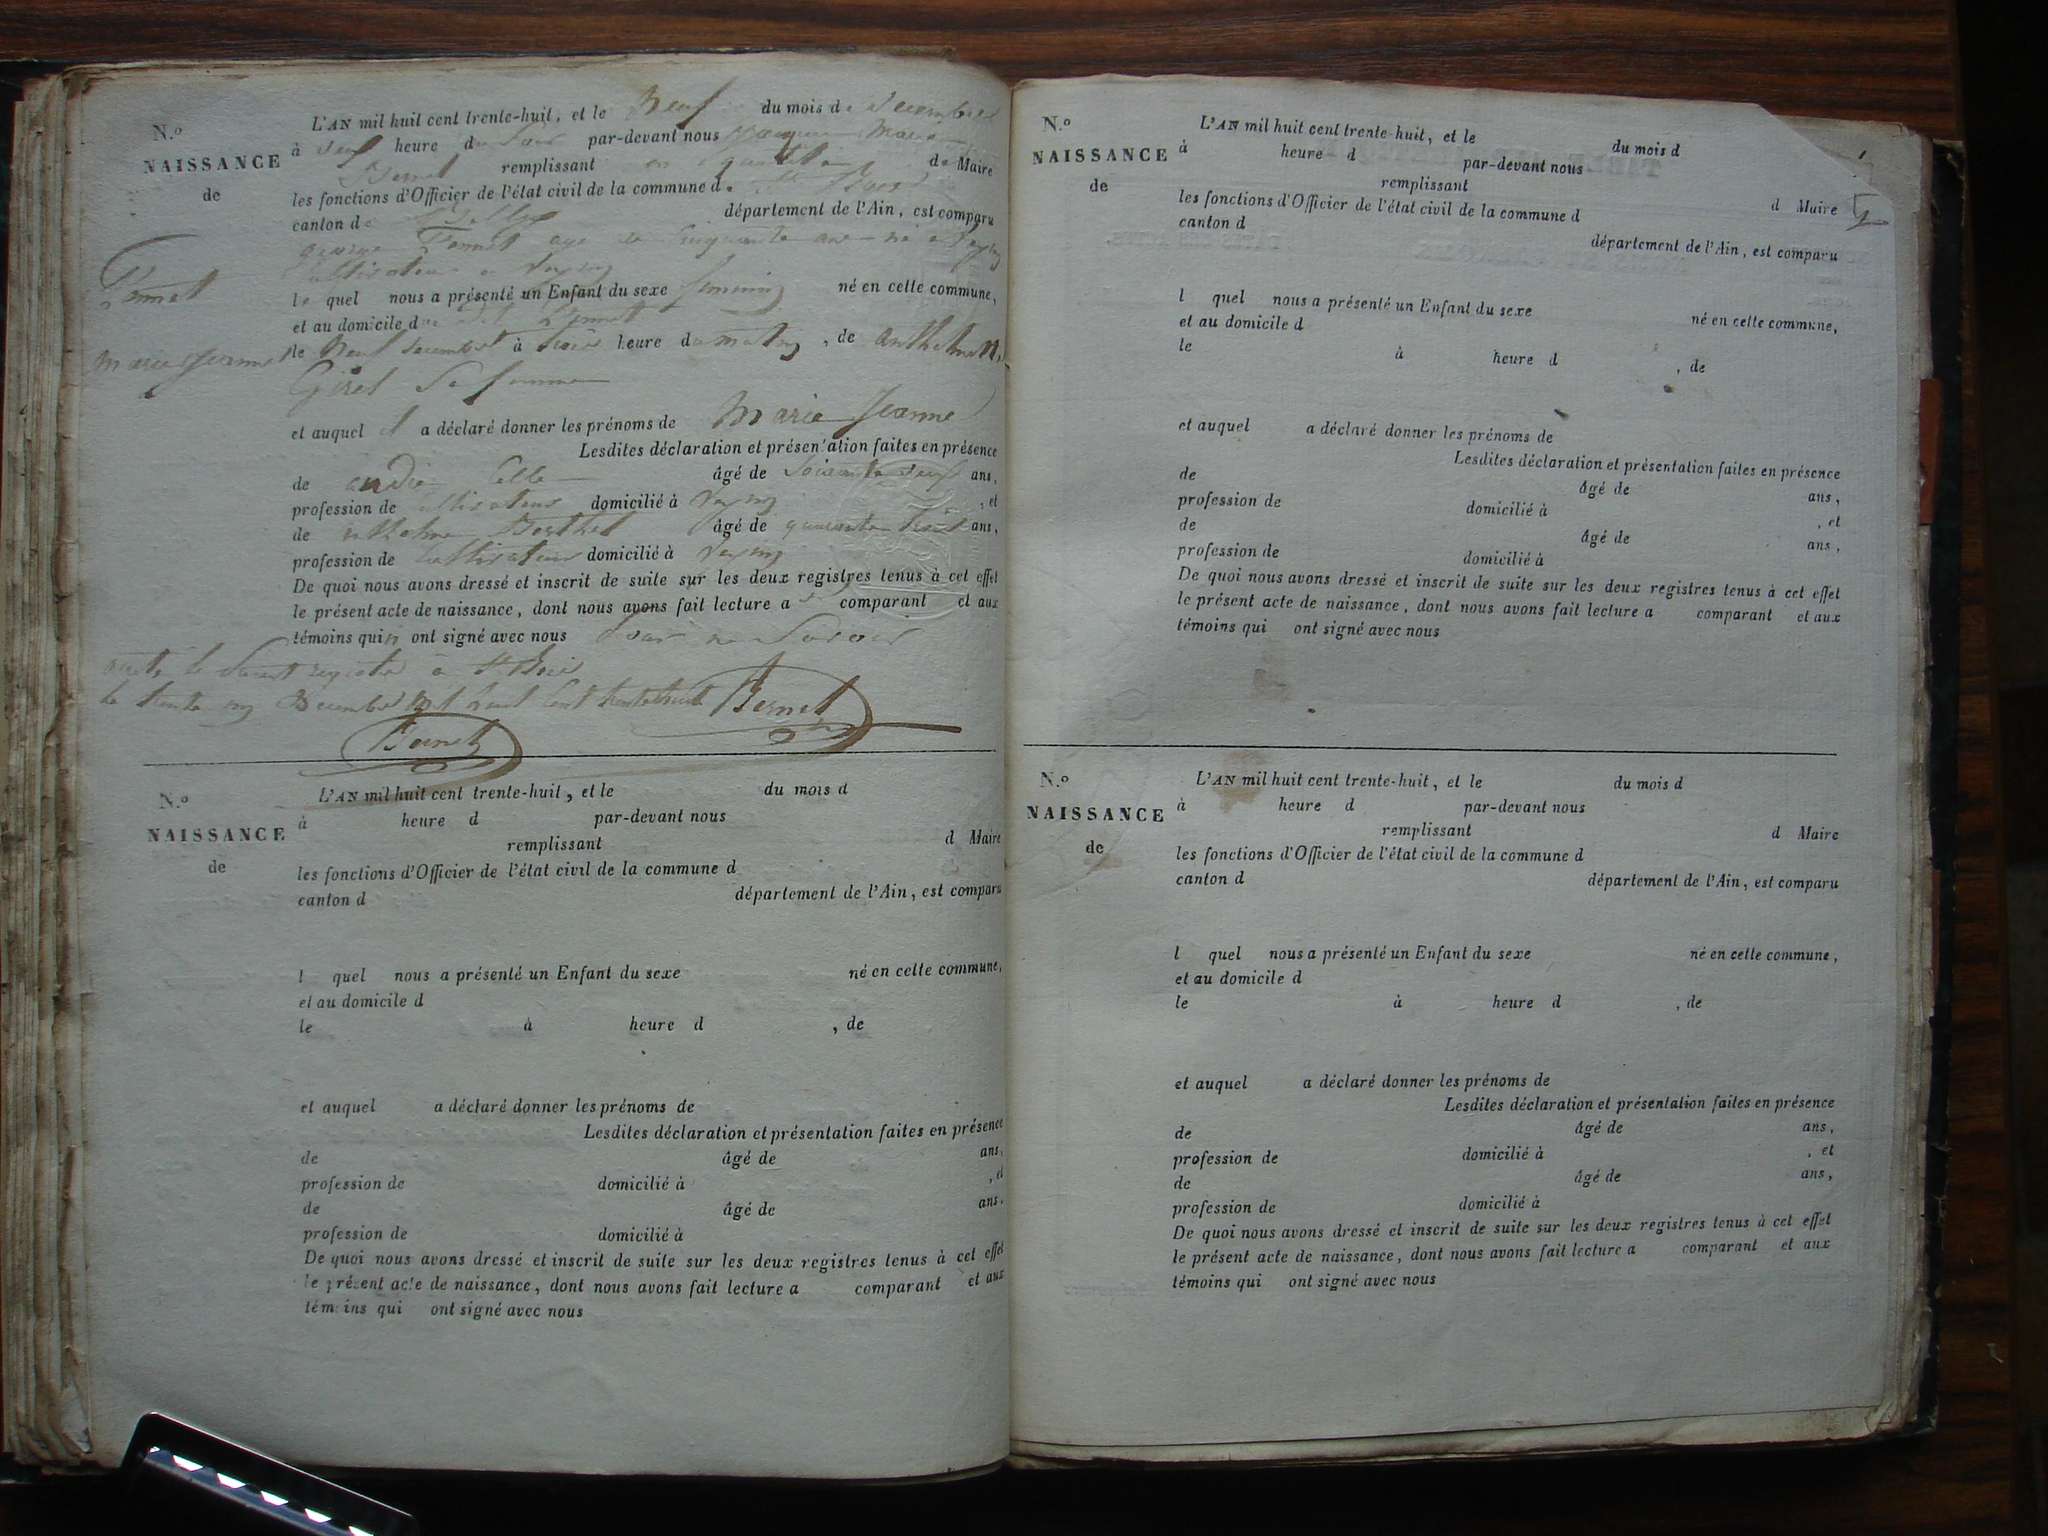 N.º
NAISSANCE
de
Marie Jeanne
L'AN mil huit cent trente-huit, et le Neuf du mois de decembre
à heure du Soir par-devant nous
Bernet remplissant de Maire
les fonctions d'Officier de l'état civil de la commune d
canton de département de l'Ain, est comparu
age de Cinquante ans né a
le quel nous a présenté un Enfant du sexe feminin né en cette commune,
et au domicile d
le Neuf decembre à heure du matin, de
Girel Sa femme
et auquel il a déclaré donner les prénoms de Marie Jeanne
Lesdites déclaration et présentation faites en présence
de andré âgé de ans,
profession de domicilié à , et
de Berthet âgé de quarante ans,
profession de domicilié à
De quoi nous avons dressé et inscrit de suite sur les deux registres tenus à cet effet
le présent acte de naissance, dont nous avons fait lecture a comparant et aux
témoins qui n ont signé avec nous pour ne Savoir
le présent registre à
le trente un Decembre mil huit Cent trente huit Bernet
Bernet
N.º
NAISSANCE
de
L'AN mil huit cent trente-huit, et le du mois d
à heure d par-devant nous
remplissant d Maire
les fonctions d'Officier de l'état civil de la commune d
canton d département de l'Ain, est comparu
l quel nous a présenté un Enfant du sexe né en cette commune,
et au domicile d
le à heure d , de
et auquel a déclaré donner les prénoms de
Lesdites déclaration et présentation faites en présence
de âgé de ans,
profession de domicilié à , et
de âgé de ans,
profession de domicilié à
De quoi nous avons dressé et inscrit de suite sur les deux registres tenus à cet effet
le présent acte de naissance, dont nous avons fait lecture a comparant et aux
témoins qui ont signé avec nous
N.º
NAISSANCE
de
L'AN mil huit cent trente-huit, et le du mois d
à heure d par-devant nous
remplissant d Maire
les fonctions d'Officier de l'état civil de la commune d
canton d département de l'Ain, est comparu
l quel nous a présenté un Enfant du sexe né en cette commune,
et au domicile d
le à heure d , de
et auquel a déclaré donner les prénoms de
Lesdites déclaration et présentation faites en présence
de âgé de ans,
profession de domicilié à , et
de âgé de ans,
profession de domicilié à
De quoi nous avons dressé et inscrit de suite sur les deux registres tenus à cet effet
le présent acte de naissance, dont nous avons fait lecture a comparant et aux
témoins qui ont signé avec nous
N.º
NAISSANCE
de
L'AN mil huit cent trente-huit, et le du mois d
à heure d par-devant nous
remplissant d Maire
les fonctions d'Officier de l'état civil de la commune d
canton d département de l'Ain, est comparu
l quel nous a présenté un Enfant du sexe né en cette commune,
et au domicile d
le à heure d , de
et auquel a déclaré donner les prénoms de
Lesdites déclaration et présentation faites en présence
de âgé de ans,
profession de domicilié à , et
de âgé de ans,
profession de domicilié à
De quoi nous avons dressé et inscrit de suite sur les deux registres tenus à cet effet
le présent acte de naissance, dont nous avons fait lecture a comparant et aux
témoins qui ont signé avec nous